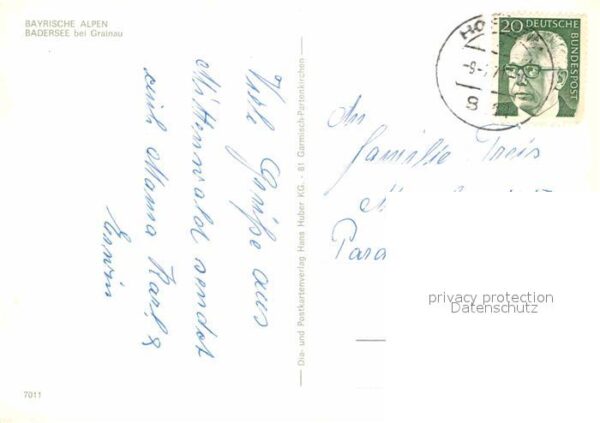 BAYRISCHE ALPEN
BADERSEE bei Grainau
Viele Grüße aus
Mittenwald sendet
euch Mama Karl &
Erwin
Dia- und Postkartenverlag Hans Huber KG. - 81 Garmisch-Partenkirchen
20 DEUTSCHE
BUNDESPOST
An
Familie
Para
privacy protection
Datenschutz
7011